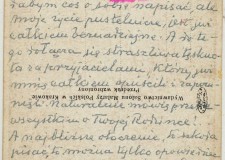 żabym coś o sobie napisać, ale
moje życie pustelnicze, jest już
całkiem bernardyńskie. A do te-
go dołącza się straszliwa tęskno-
ta za przyjaciółmi, którzy już
mnie całkiem opuścili i zapom-
nieli. Naturalnie mówię przede
wszystkim o Twojej Rodzince!
A najbliższe otoczenie, to szkoda
pisać, to można tylko opowiedzieć
Wydawnictwo Salonu Malarzy Polskich w Krakowie.
Przedruk wzbroniony